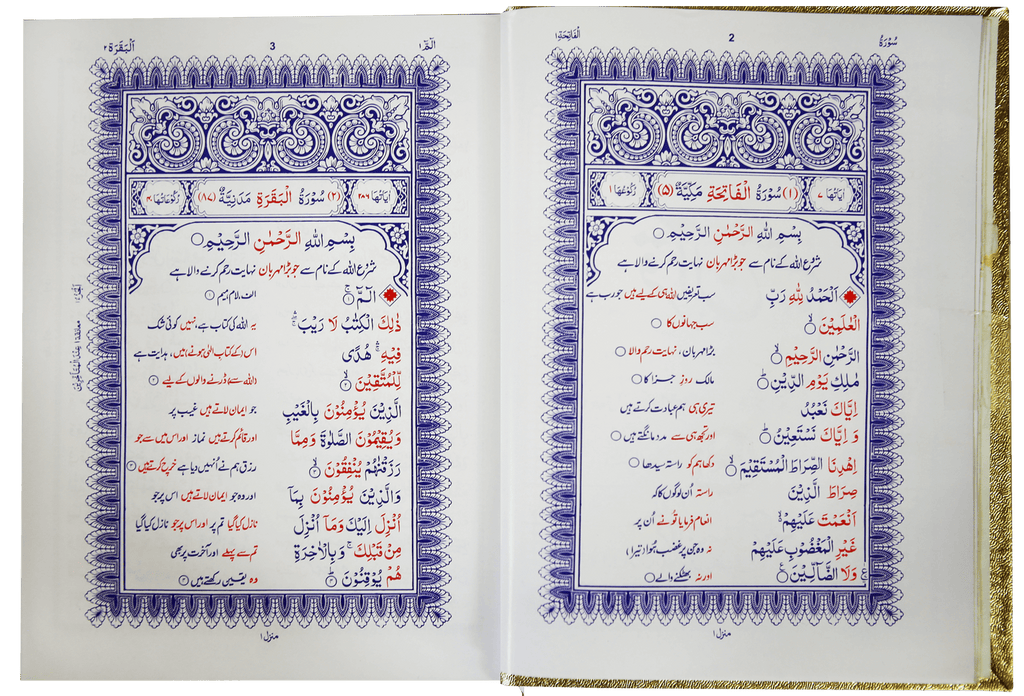 سُوْرَةُ
2
اَلْفَاتِحَة ١
اٰيَاتُهَا ٧
(١) سُوْرَةُ الْفَاتِحَةِ مَكِّيَّةٌ (٥)
رُكُوْعُهَا ١
بِسْمِ اللّٰهِ الرَّحْمٰنِ الرَّحِيْمِ
شرُوع اللہ کے نام سے جو بڑا مہربان نہایت رحم کرنے والا ہے
اَلْحَمْدُ لِلّٰهِ رَبِّ سب تعریفیں اللہ ہی کے لیے ہیں جو رب ہے
الْعٰلَمِيْنَ ۙ سب جہانوں کا
الرَّحْمٰنِ الرَّحِيْمِ ۙ بڑا مہربان، نہایت رحم والا
مٰلِكِ يَوْمِ الدِّيْنِ ؕ مالک روزِ جزا کا
اِيَّاكَ نَعْبُدُ تیری ہی ہم عبادت کرتے ہیں
وَ اِيَّاكَ نَسْتَعِيْنُ ؕ اور تجھ ہی سے مدد مانگتے ہیں
اِهْدِنَا الصِّرَاطَ الْمُسْتَقِيْمَ ۙ دکھا ہم کو راستہ سیدھا
صِرَاطَ الَّذِيْنَ راستہ اُن لوگوں کا کہ
اَنْعَمْتَ عَلَيْهِمْ ۙ انعام فرمایا تُو نے اُن پر
غَيْرِ الْمَغْضُوْبِ عَلَيْهِمْ نہ وہ جن پر غضب ہُوا (تیرا)
وَلَا الضَّآلِّيْنَ اور نہ بھٹکنے والے
منزل ١
الٓمّٓ ١
3
اَلْبَقَرَة ٢
اٰيَاتُهَا ٢٨٦
(٢) سُوْرَةُ الْبَقَرَةِ مَدَنِيَّةٌ (٨٧)
رُكُوْعَاتُهَا ٤٠
بِسْمِ اللّٰهِ الرَّحْمٰنِ الرَّحِيْمِ
شرُوع اللہ کے نام سے جو بڑا مہربان نہایت رحم کرنے والا ہے
الٓمّٓ ۚ ١ الف، لام، میم ١
ذٰلِكَ الْكِتٰبُ لَا رَيْبَ ۛ یہ اللہ کی کتاب ہے، نہیں کوئی شک
فِيْهِ ۛ هُدًى اس (کے کتاب الٰہی ہونے) میں، ہدایت ہے
لِّلْمُتَّقِيْنَ ۙ ٢ (اللہ سے) ڈرنے والوں کے لیے ٢
الَّذِيْنَ يُؤْمِنُوْنَ بِالْغَيْبِ جو ایمان لاتے ہیں غیب پر
وَيُقِيْمُوْنَ الصَّلٰوةَ وَمِمَّا اور قائم کرتے ہیں نماز اور اس میں سے جو
رَزَقْنٰهُمْ يُنْفِقُوْنَ ۙ ٣ رزق ہم نے اُنہیں دیا ہے خرچ کرتے ہیں ٣
وَالَّذِيْنَ يُؤْمِنُوْنَ بِمَآ اور وہ جو ایمان لاتے ہیں اس پر جو
اُنْزِلَ اِلَيْكَ وَمَآ اُنْزِلَ نازل کیا گیا تم پر اور اس پر جو نازل کیا گیا
مِنْ قَبْلِكَ ۚ وَبِالْاٰخِرَةِ تم سے پہلے اور آخرت پر بھی
هُمْ يُوْقِنُوْنَ ؕ ٤ وہ یقین رکھتے ہیں ٤
منزل ١